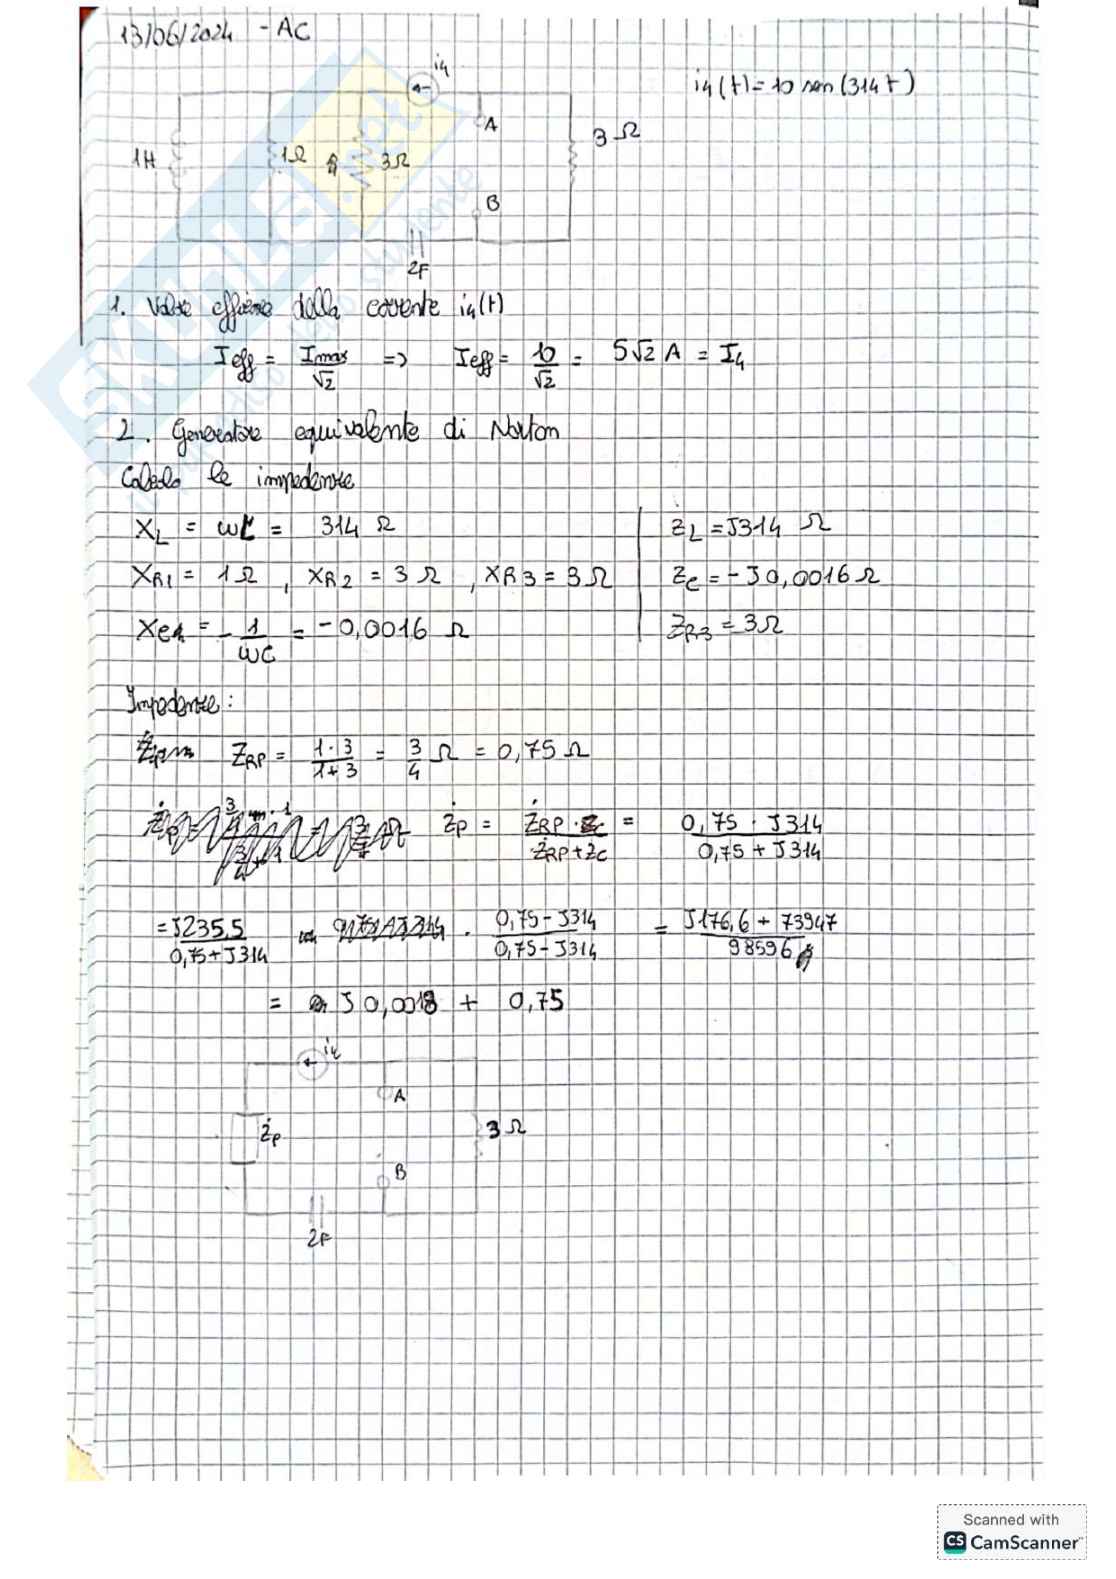 13/06/2024 - AC
i4(t) = 10 sen(314t)
i4
A
1H
1Ω
3Ω
3Ω
B
2F
1. Valore efficace della corrente i4(t)
Ieff = Imax/√2 => Ieff = 10/√2 = 5√2 A = I4
2. Generatore equivalente di Norton
Calcolo le impedenze
XL = ωL = 314 Ω
ŻL = J314 Ω
XR1 = 1Ω, XR2 = 3Ω, XR3 = 3Ω
Żc = -J0,0016Ω
Xc = - 1/ωC = -0,0016 Ω
ŻR3 = 3Ω
Impedenze:
ZRP = 1·3/1+3 = 3/4 Ω = 0,75 Ω
Żp = ŻRP · Żc / ŻRP + Żc = 0,75 · J314 / 0,75 + J314
= J235,5 / 0,75 + J314 · 0,75 - J314 / 0,75 - J314 = J176,6 + 73947 / 98596
= J 0,0018 + 0,75
i4
A
Żp
3 Ω
B
2F
SKUOLA.net
Scanned with
CS CamScanner